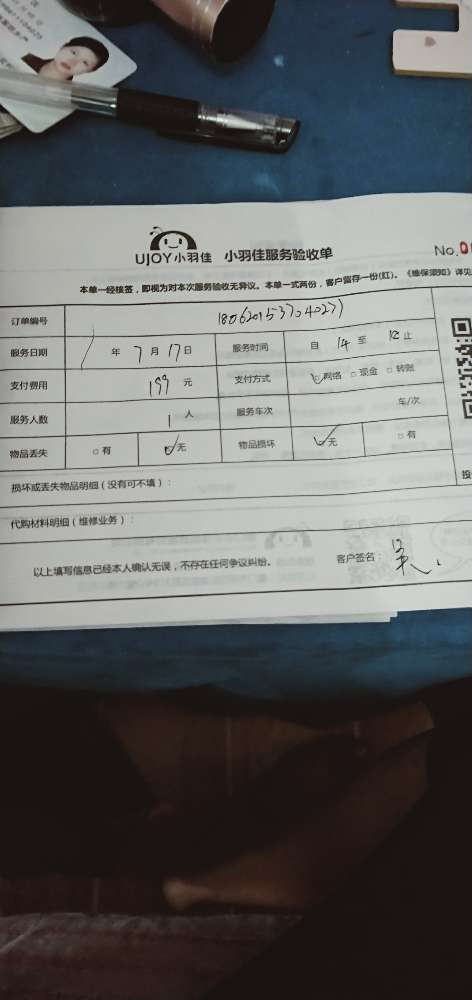 UJOY小羽佳 小羽佳服务验收单
No.0
本单一经核签，即视为对本次服务验收无异议。本单一式两份，客户留存一份(红)。《维保须知》详见
订单编号
服务日期 / 年 7 月 17 日 服务时间 自 14 至 18 止
支付费用 199 元 支付方式 ☑网络 □现金 □转账
服务人数 1 人 服务车次 车/次
物品丢失 □有 ☑无 物品损坏 ☑无 □有
损坏或丢失物品明细（没有可不填）：
投
代购材料明细（维修业务）：
以上填写信息已经本人确认无误，不存在任何争议纠纷。 客户签名：